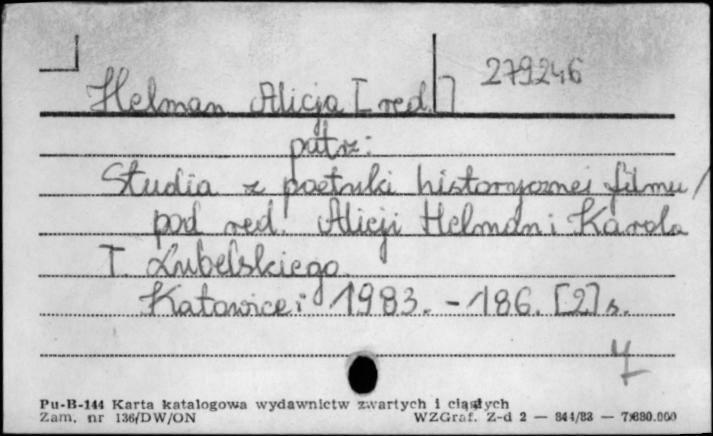 279246
Helman Alicja [red.]
patrz:
Studia z poetyki historycznej filmu /
pod red. Alicji Helman i Karola
T. Lubelskiego.
Katowice: 1983. - 186. [2] s.
Pu-B-144 Karta katalogowa wydawnictw zwartych i ciągłych
Zam. nr 136/DW/ON WZGraf. Z-d 2 — 844/83 — 7.880.000